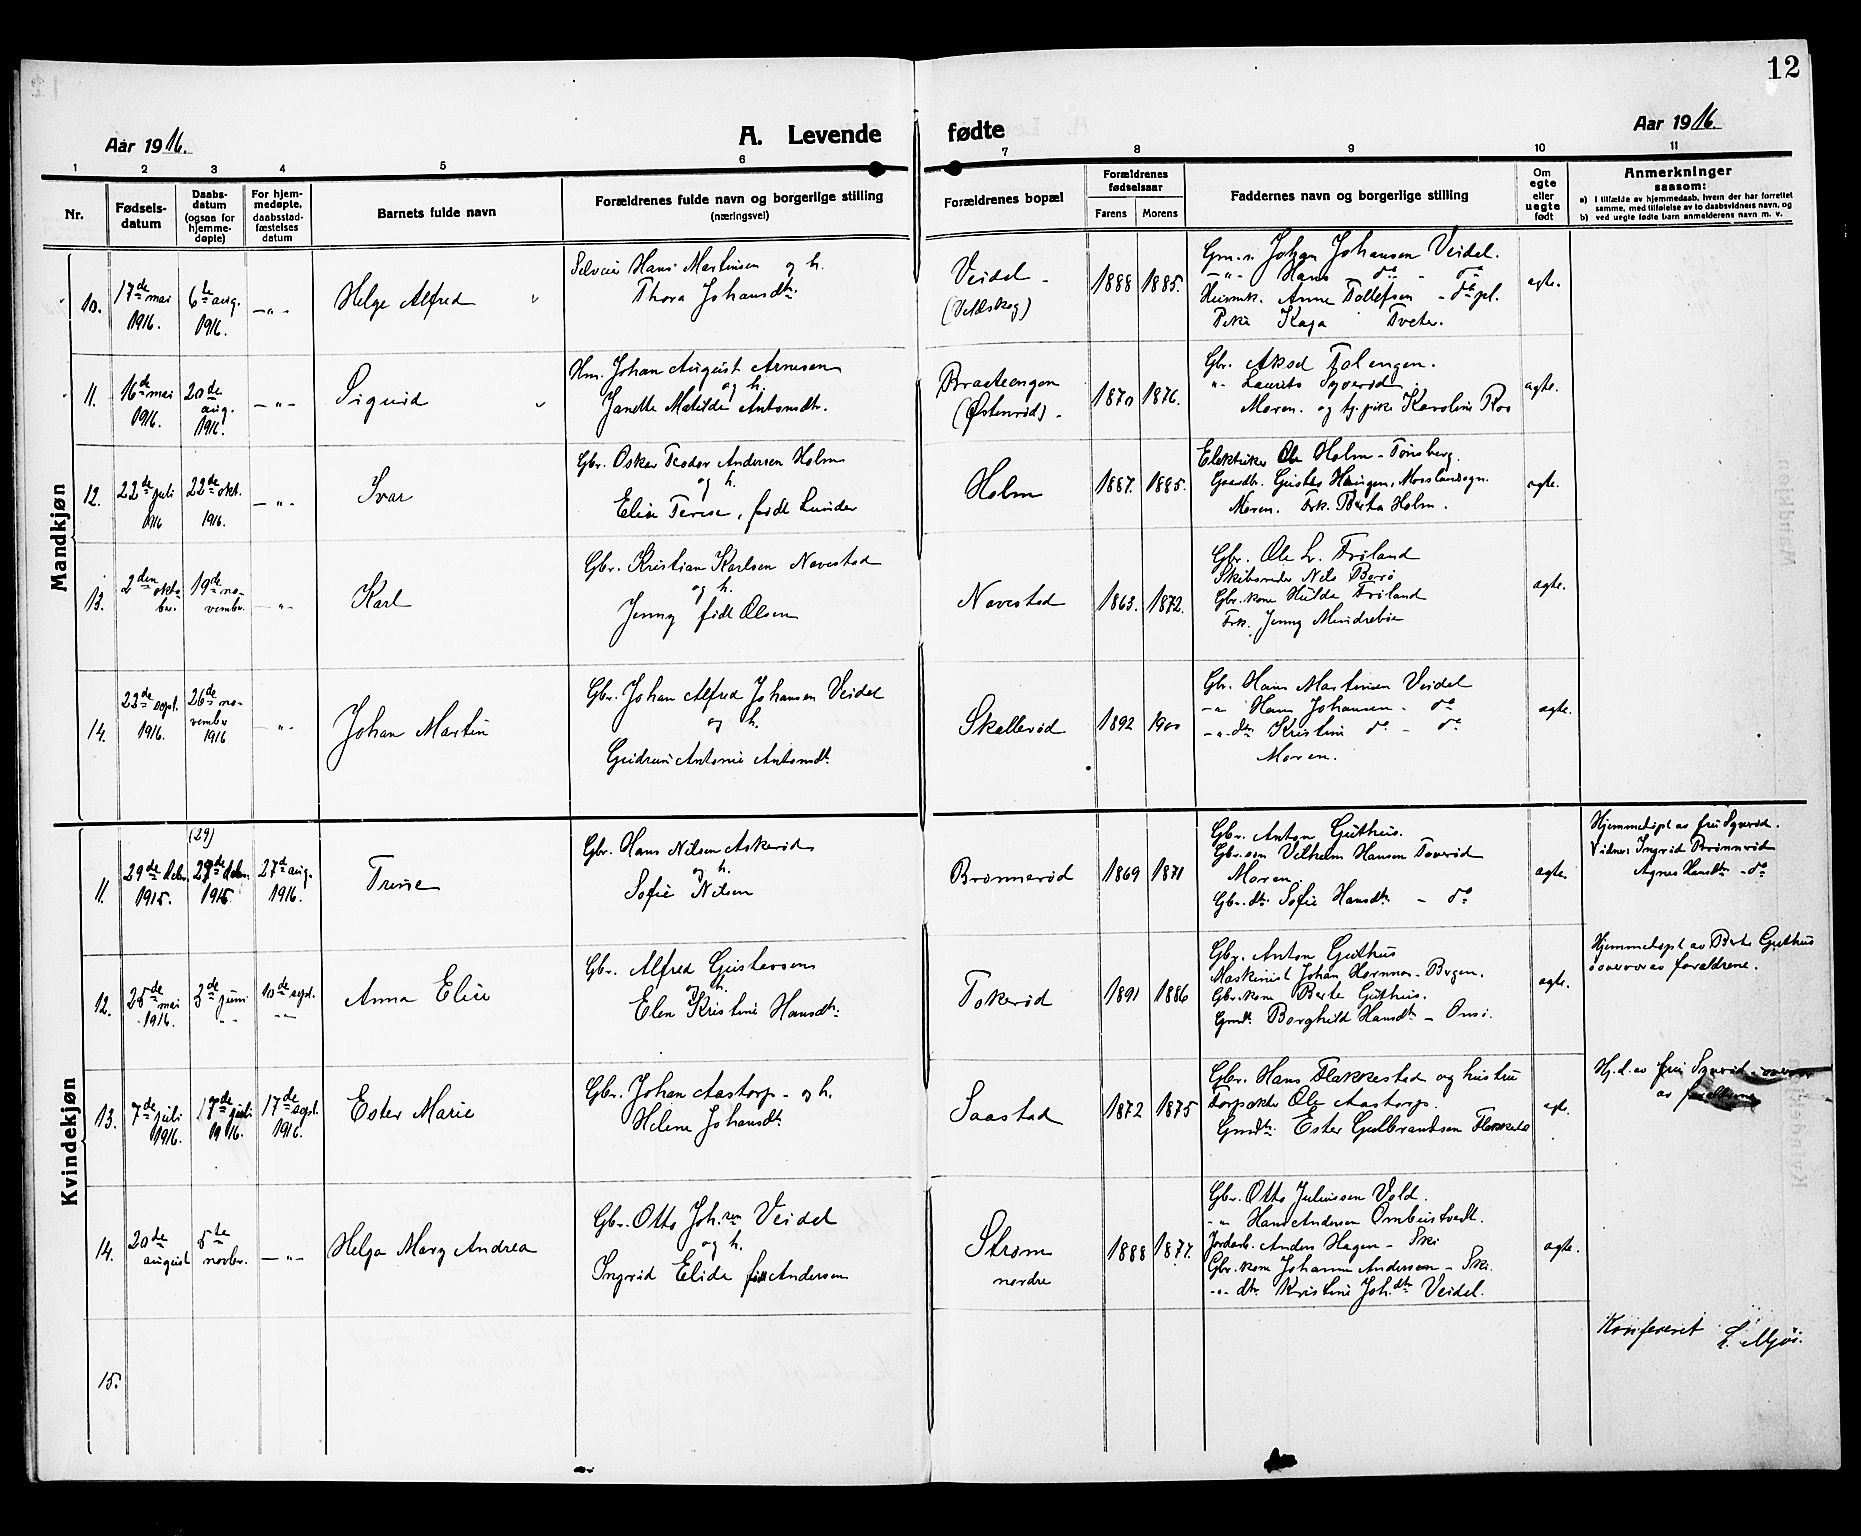 12
Aar 1916.
A. Levende fødte
Aar 1916.
1 2 3 4 5 6 7 8 9 10 11
Nr.
Fødsels-
datum
Daabs-
datum
(ogsaa for
hjemme-
døpte)
For hjem-
medøpte,
daabsstad-
fæstelses
datum
Barnets fulde navn
Forældrenes fulde navn og borgerlige stilling
(næringsvei)
Forældrenes bopæl
Forældrenes
fødselsaar
Farens Morens
Faddernes navn og borgerlige stilling
Om
egte
eller
uegte
født
Anmerkninger
saasom:
a) I tilfælde av hjemmedaab, hvem der har forrettet
samme, med tilføielse av to daabsvidners navn, og
b) ved uegte fødte barn anmelderens navn m. v.
Mandkjøn
10.
17de mai
1916.
6te aug.
1916.
—"—
Helge Alfred
Selveier Hans Martinsen og h.
Thora Johansdtr.
Veidel
(Vidskog)
1888 1885.
Gm.s. Johan Johansen Veidel.
—"— Hans do - do
Anne Tollefsen - do pl.
Pike Kaja Tveter.
egte.
11.
16de mai
1916.
20de
aug.
1916.
—"—
Sigurd
Hm. Johan August Arnesen
og h.
Janette Matilde Antonsdtr.
Braateengen
(Østenrød)
1870 1876.
Gbr. Folengen.
" Laurits Syverød.
Moren. og tj. pike Karoline Roo
egte.
12.
22de juli
1916
22de okt.
1916.
—"—
Ivar
Gbr. Oskar Teodor Andersen Holm
og h.
Elise Terese, født Lunder
Holm
1887. 1885.
Elektriker Ole Holm - Tønsberg.
Gaardbr. Gustav Haugen, Mosslandsogn.
Moren. Frk. Berta Holm.
egte.
13.
2den okto-
ber.
19de no-
vember.
—"—
Karl
Gbr. Kristian Karlsen Navestad
og h.
Jenny født Olsen
Navestad
1863. 1872.
Gbr. Ole L. Frøland
Skibsreder Nils Borø
Gbr. kone Hulda Frøland
Frk. Jenny Mundrebøe
egte.
14.
22de sept.
1916.
26de no-
vember
1916
—"—
Johan Martin
Gbr. Johan Alfred Johansen Veidel
og h.
Gudrun Antonie Antonsdtr.
Skallerød
1892 1900
Gbr. Hans Martinsen Veidel
—"— Hans Johansen - do
—"— dtr. Kristine do - do
Moren.
egte.
Kvindekjøn
11.
29de debr.
1915.
(29)
29de debr.
1915.
27d aug.
1916.
Trine
Gbr. Hans Nilsen Askerød
og h.
Sofie Nilsen
Brønnerød
1869 1871
Gbr. Anton Guthus.
Gbr. søn Vilhelm Hansen Toverød
Moren.
Gbr. dtr. Sofie Hansdtr - do
egte.
Hjemmedøpt av fru Syverød.
Vidner Ingrid Brønnerød
Agnes Hansdtr. - do
12.
25de mai
1916.
3de juni
—"—
10de sept.
—"—
Anna Elise
Gbr. Alfred Gustavsen
og h.
Elen Kristine Hansdtr.
Tokerød
1891 1886
Gbr. Anton Guthus
Maskinist Johan Hornnes - Bergen.
Gbr. kone Berte Guthus.
Gmdtr. Borghild Hansdtr - Onsø.
egte.
Hjemmedøpt av Berte Guthus
i overvær av forældrene.
13.
7de juli
1916.
17de juli
1916.
17de sept.
1916.
Ester Marie
Gbr. Johan Aastorp - og h.
Helene Johansdtr.
Saastad
1872 1875
Gbr. Hans Flakkestad og hustru
Torpedktr. Ole Aastorp.
Gmdtr. Ester Gulbrandsen Flakkestad
egte.
Hj. d. av fru Syverød
av forældrene
14.
20de
august
5te
novbr.
—"—
Helga Mary Andrea
Gbr. Otto Joh.sen Veidel
og h.
Ingrid Elida født Andersen
Strøm
nordre
1888 1877.
Gbr. Otto Juliussen Vold.
—"— Hans Andersen Ombustvedt.
Jordarb. Anders Hagen - Ski
Gbr. kone Johanne Andersen - Ski.
—"— dtr. Kristine Joh.dtr Veidel.
egte.
15.
Konfereret
L. Mjøs.